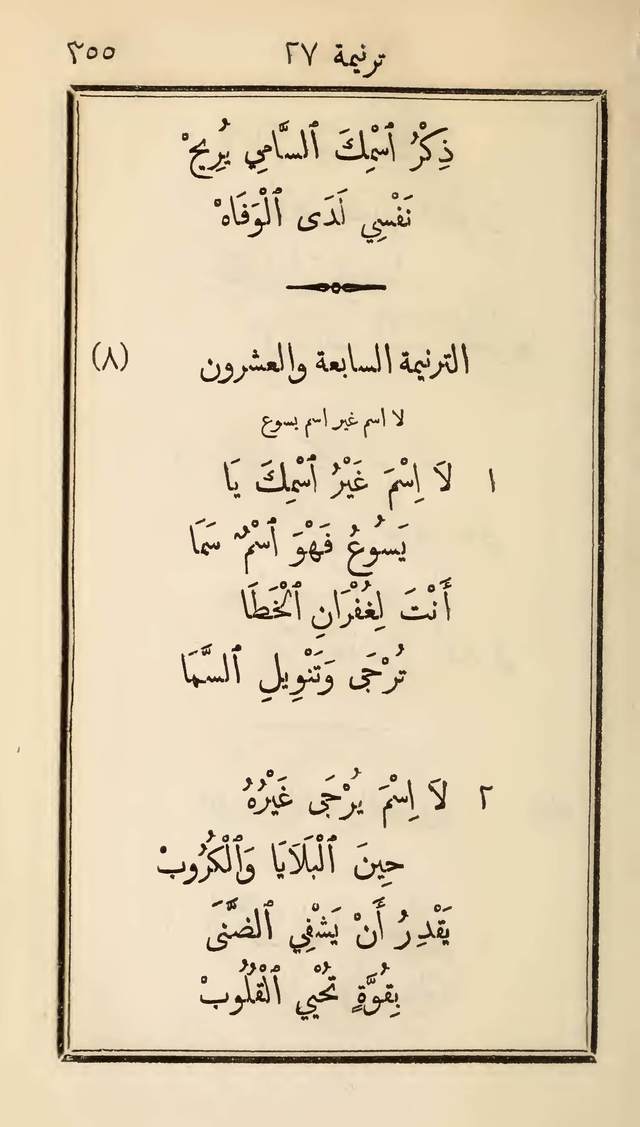 ترنيمة ٢٧ ٣٥٥
ذِكْرُ ٱسْمِكَ ٱلسَّامِي يُرِيحْ
نَفْسِي لَدَى ٱلْوَفَاهْ
الترنيمة السابعة والعشرون (٨)
لا اسم غير اسم يسوع
١ لَا إِسْمَ غَيْرُ ٱسْمِكَ يَا
يَسُوعُ فَهْوَ ٱسْمٌ سَمَا
أَنْتَ لِغُفْرَانِ ٱلْخَطَا
تُرْجَى وَتَنْوِيلِ ٱلسَّمَا
٢ لَا إِسْمَ يُرْجَى غَيْرُهُ
حِينَ ٱلْبَلَايَا وَٱلْكُرُوبْ
يَقْدِرُ أَنْ يَشْفِي ٱلضَّنَى
بِقُوَّةٍ تُحْيِي ٱلْقُلُوبْ